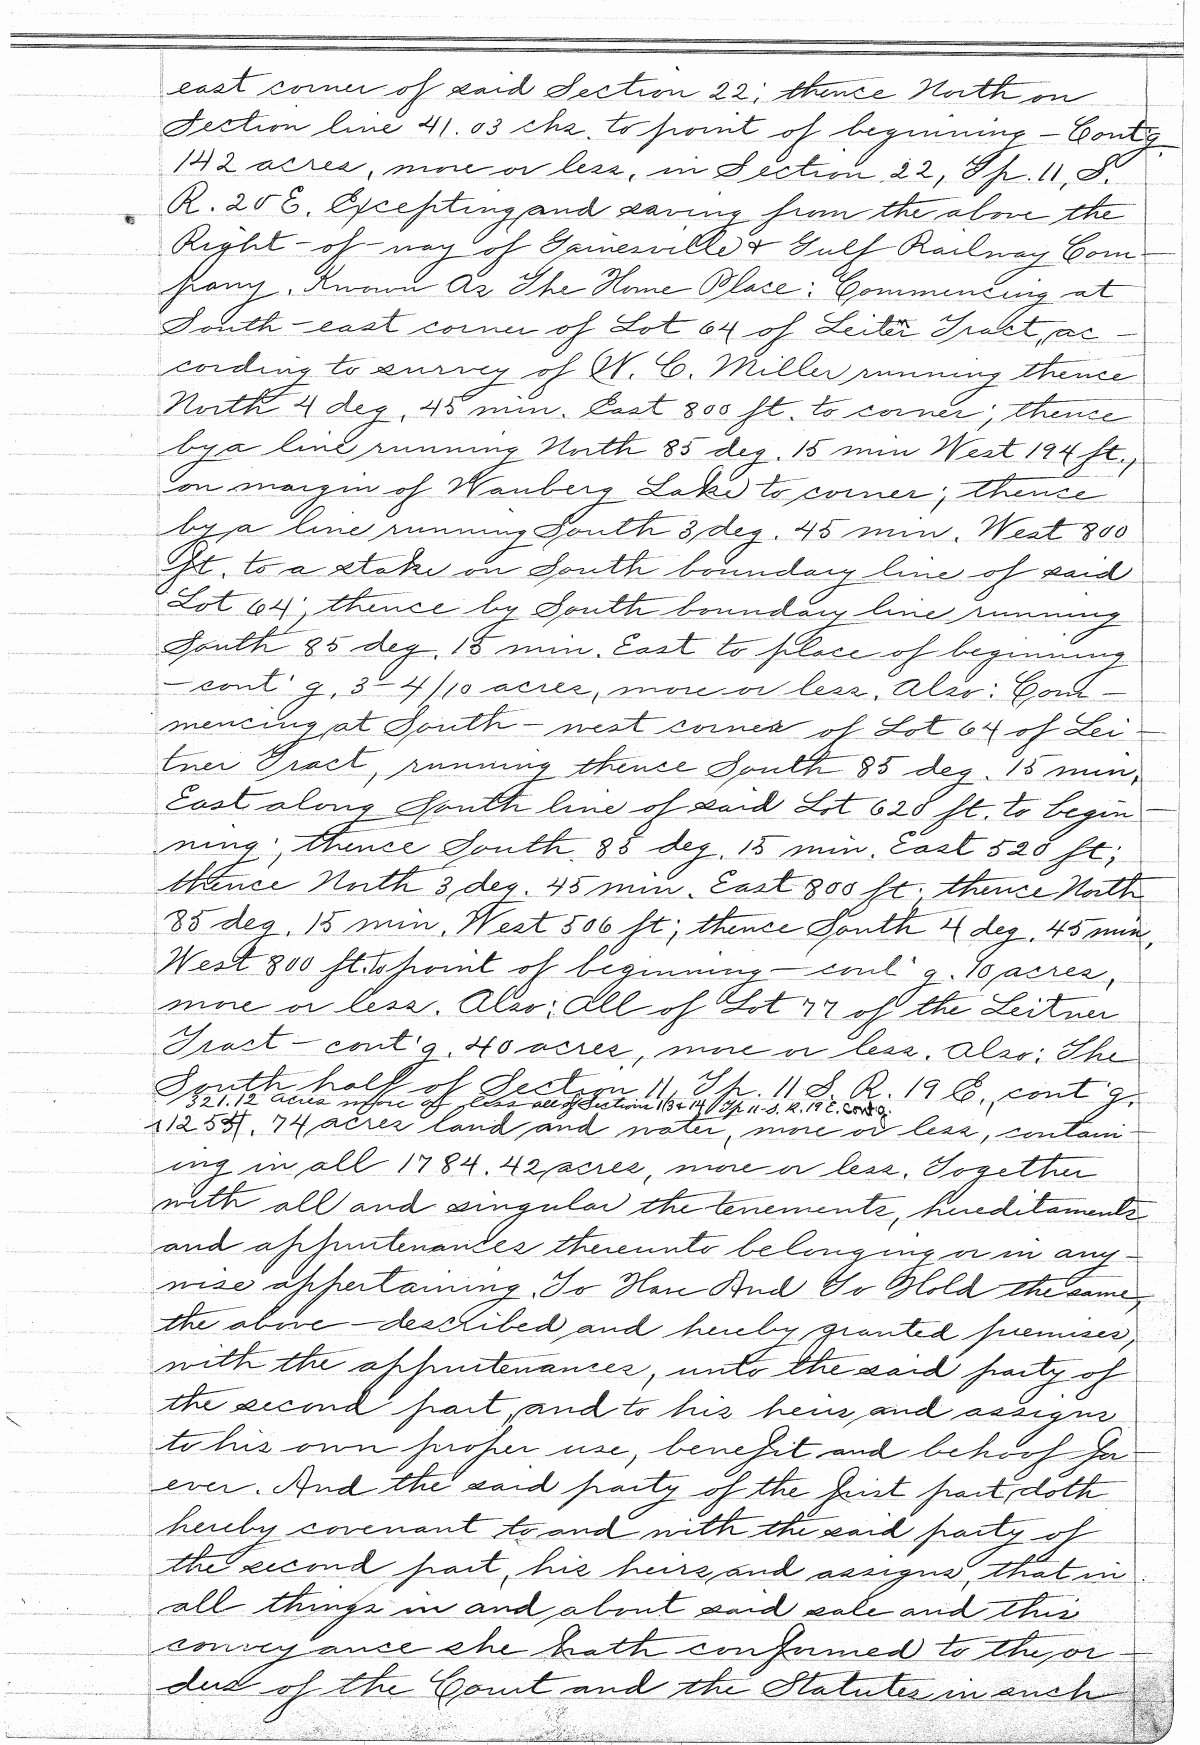 east corner of said Section 22; thence North on
Section line 41.03 chs. to point of beginning - Cont'g
142 acres, more or less, in Section 22, Tp. 11, S.
R. 20 E. Excepting and saving from the above the
Right-of-way of Gainesville & Gulf Railway Com-
pany. Known As The Home Place: Commencing at
South-east corner of Lot 64 of Leitner Tract, ac-
cording to survey of W. C. Miller running thence
North 4 deg. 45 min. East 800 ft. to corner; thence
by a line running North 85 deg. 15 min West 194 ft.,
on margin of Wauberg Lake to corner; thence
by a line running South 3 deg. 45 min. West 800
ft. to a stake on South boundary line of said
Lot 64; thence by South boundary line running
South 85 deg. 15 min. East to place of beginning
- cont'g. 3-4/10 acres, more or less. Also: Com-
mencing at South-west corner of Lot 64 of Lei-
tner Tract, running thence South 85 deg. 15 min.
East along South line of said Lot 620 ft. to begin-
ning; thence South 85 deg. 15 min. East 520 ft;
thence North 3 deg. 45 min. East 800 ft; thence North
85 deg. 15 min. West 506 ft; thence South 4 deg. 45 min.
West 800 ft. to point of beginning - cont'g. 10 acres,
more or less. Also: All of Lot 77 of the Leitner
Tract - cont'g. 40 acres, more or less. Also: The
South half of Section 11, Tp. 11 S. R. 19 E., cont'g.
321.12 acres more or less all of Section 13 & 14 Tp 11-S. R. 19 E. Cont'g.
1254.74 acres land and water, more or less, contain-
ing in all 1784.42 acres, more or less. Together
with all and singular the tenements, hereditaments
and appurtenances thereunto belonging or in any-
wise appertaining. To Have And To Hold the same,
the above-described and hereby granted premises,
with the appurtenances, unto the said party of
the second part, and to his heirs and assigns
to his own proper use, benefit and behoof for-
ever. And the said party of the first part, doth
hereby covenant to and with the said party of
the second part, his heirs and assigns, that in
all things in and about said sale and this
conveyance she hath conformed to the or-
ders of the Court and the Statutes in such